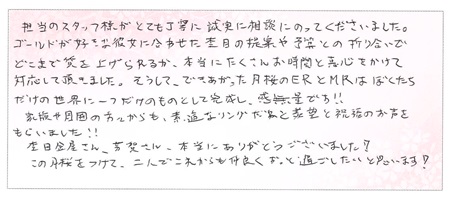 担当のスタッフ様がとても丁寧に誠実に相談にのってくださいました。
ゴールドが好きな彼女に合わせた杢目の提案や予算との折り合いで
どこまで質を上げられるか、本当にたくさんお時間と真心をかけて
対応して頂きました。そうして、できあがった月桜のERとMRはぼくたち
だけの世界に一つだけのものとして完成し、感無量です!!
家族や周囲の方々からも、素適なリングだねと羨望と祝福のお声を
もらいました!!
杢目金屋さん、芳賀さん、本当にありがとうございました!
この月桜をつけて、二人でこれからも仲良くずっと過ごしたいと思います!